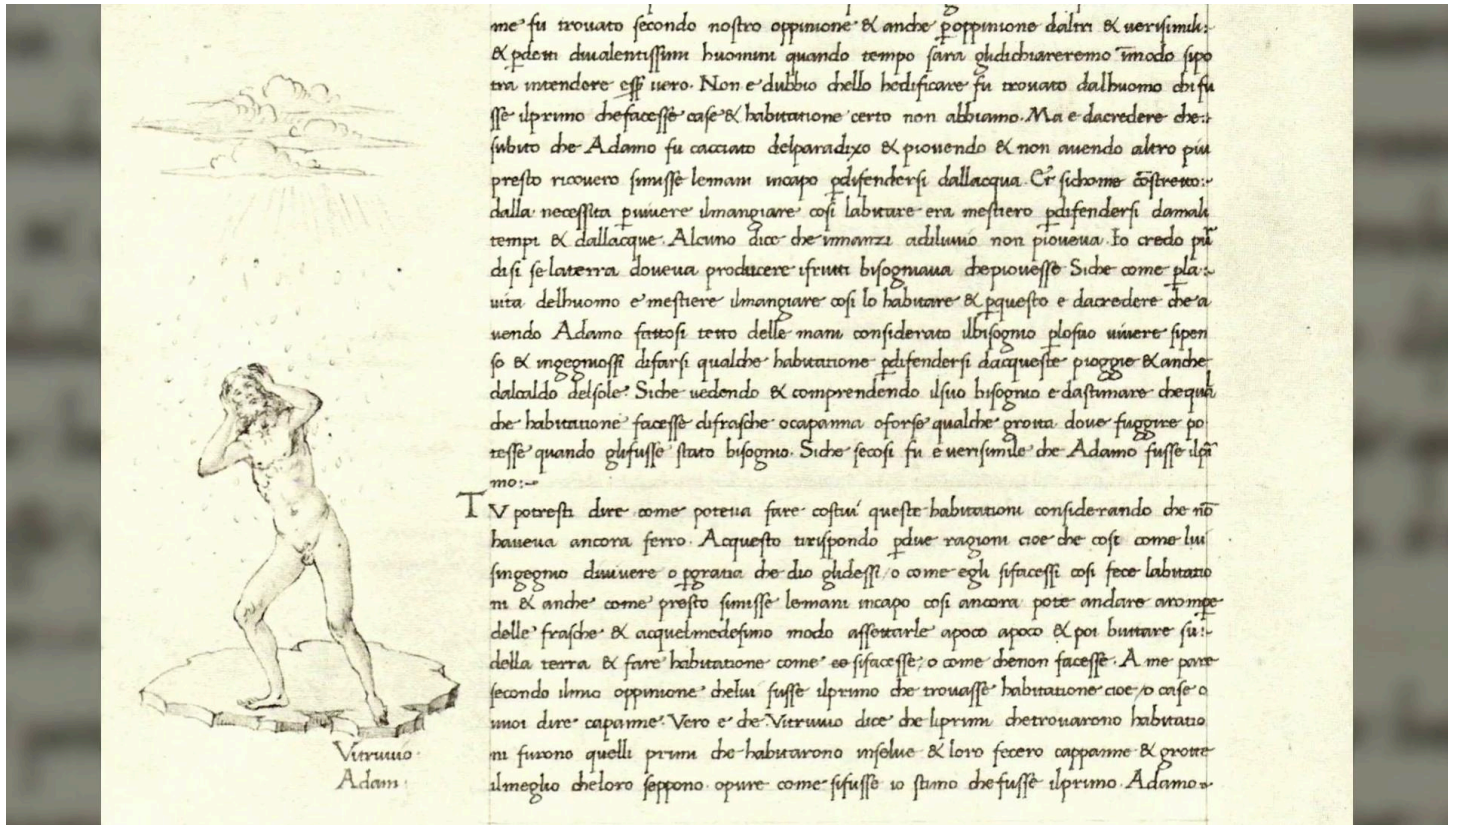 me fu trovato secondo nostro oppinione & anche p̄ oppinione daltri & verisimili:
& p̄detti divalentissimi huomini quando tempo sara glidichiareremo īmodo sipo
tra intendere esser̄ vero. Non e dubbio chello hedificare fu trovato dalhuomo chi fu
sse ilprimo chefacesse case & habitatione certo non abbiamo. Ma e dacredere che:
subito che Adamo fu cacciato delparadixo & piovendo & non avendo altro piu
presto ricovero simisse lemani incapo p̄difendersi dallacqua. Et sichome cōstretto:
dalla necessita p̄vivere ilmangiare cosi labitare era mestiero p̄difendersi damali
tempi & dallacque. Alcuno dice che innanzi adiluvio non pioveva. Io credo piu
disi se laterra doveva producere ifrutti bisogniava chepiovesse Siche come p̄la:
vita delhuomo e mestiere ilmangiare cosi lo habitare & p̄questo e dacredere che a
vendo Adamo fattosi tetto delle mani considerato ilbisognio p̄losuo vivere sipen
so & ingegniossi difarsi qualche habitatione p̄difendersi dacqueste pioggie & anche
dalcaldo delsole. Siche vedendo & comprendendo ilsuo bisognio e dastimare chequal
che habitatione facesse difrasche o capanna o forse qualche grotta dove fuggire po
tesse quando glifusse stato bisogno. Siche secosi fu e verisimile che Adamo fusse ilpri
mo:
TV potresti dire come poteva fare costui queste habitationi considerando che nō
haveva ancora ferro. Acquesto tirispondo p̄due ragioni cioe che cosi come lui
singegnio divivere o p̄gratia che dio glidessi / o come egli sifacessi cosi fece labitatio
ni & anche come presto simisse lemani incapo cosi ancora pote andare arompe
delle frasche & acquelmedesimo modo assettarle apoco apoco & poi buttare su:
della terra & fare habitatione come sifacesse / o come chenon facesse. A me pare
secondo ilmio oppinione chelui fusse ilprimo che trovasse habitatione cioe / o case o
vuoi dire capanne. Vero e che Vitruvio dice che liprimi chetrovarono habitatio
ni furono quelli primi che habitarono inselve & loro fecero cappanne & grotte
ilmeglio cheloro seppono. opure come sifusse io stimo chefusse ilprimo. Adamo
Vitruvio
Adam